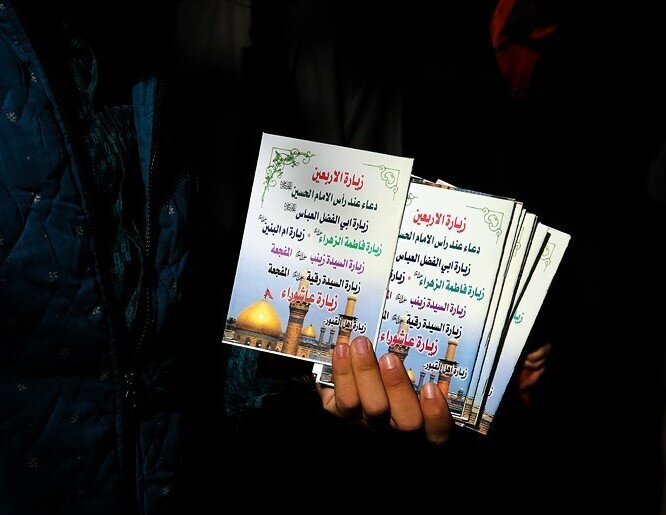 زيارة الاربعين
دعاء عند رأس الامام الحسين
زيارة ابي الفضل العباس
زيارة فاطمة الزهراء * زيارة ام البنين
زيارة السيدة زينب المفجعة
زيارة السيدة رقية المفجعة
زيارة عاشوراء
زيارة اهل القبور.
زيارة الاربعين
دعاء عند رأس الامام الحسين
زيارة ابي الفضل العباس
زيارة فاطمة الزهراء *
زيارة السيدة زينب
زيارة السيدة رقية
زيارة عاشوراء
زيارة اهل القبور.